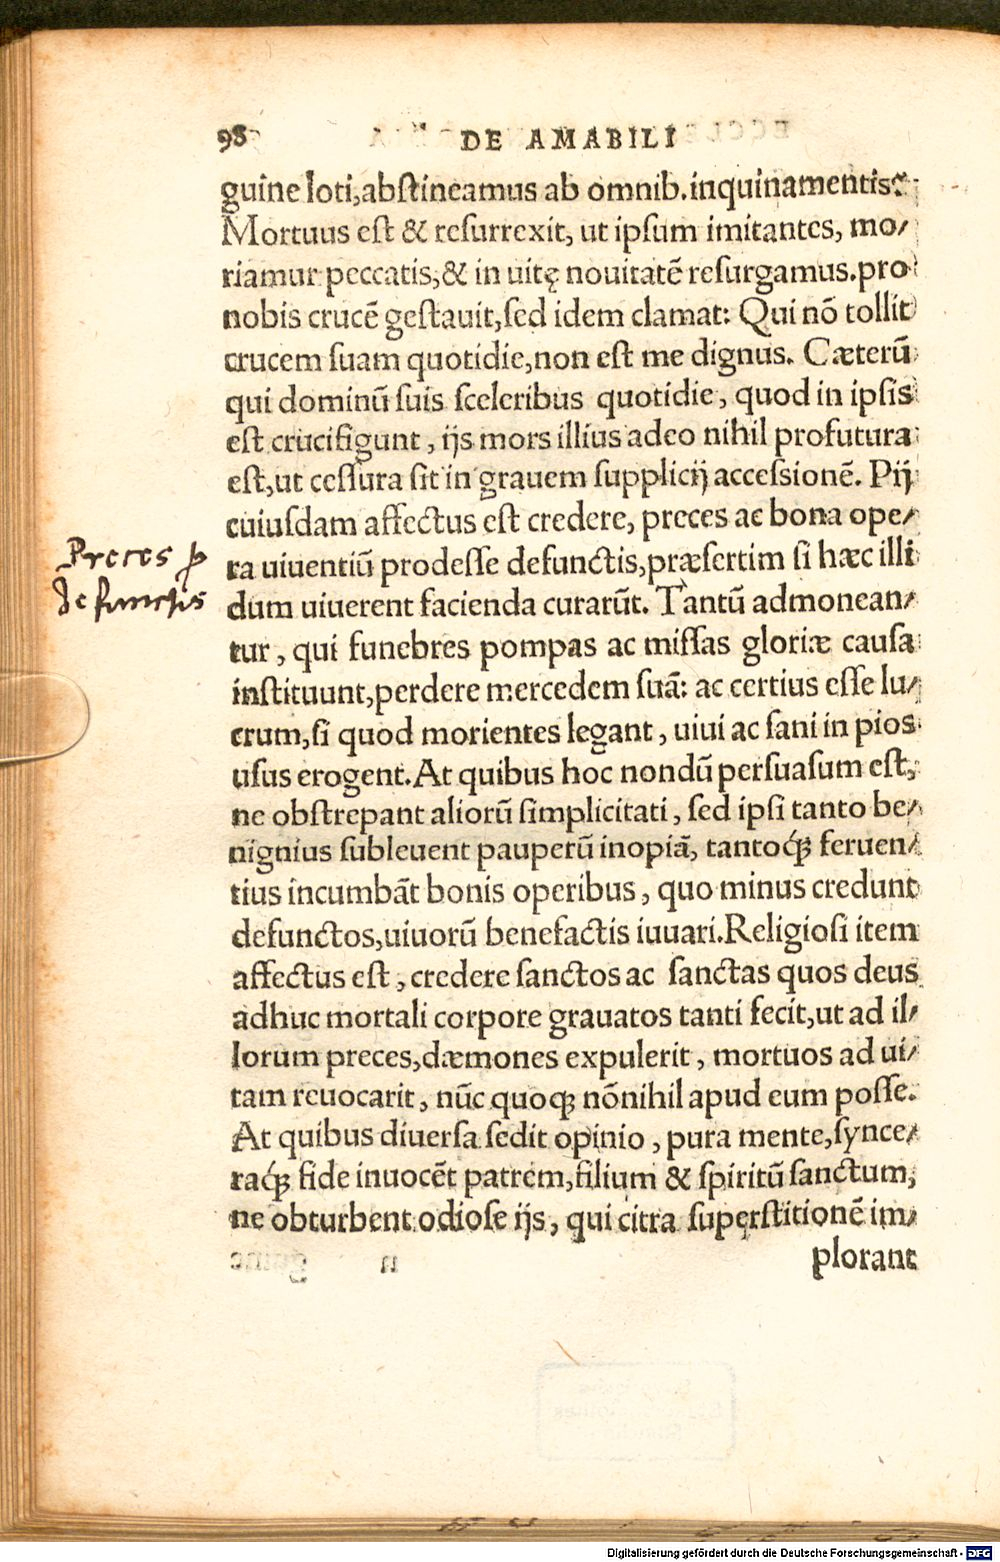 98 DE AMABILI
guine loti, abstineamus ab omnib. inquinamentis:
Mortuus est & resurrexit, ut ipsum imitantes, mo/
riamur peccatis, & in uitę nouitatē resurgamus. pro
nobis crucē gestauit, sed idem clamat: Qui nō tollit
crucem suam quotidie, non est me dignus. Cæterū
qui dominū suis sceleribus quotidie, quod in ipsis
est crucifigunt, ijs mors illius adeo nihil profutura
est, ut cessura sit in grauem supplicij accessionē. Pij
cuiusdam affectus est credere, preces ac bona ope/
Preces p
defunctis
ra uiuentiū prodesse defunctis, præsertim si hæc illi
dum uiuerent facienda curarūt. Tantū admonean/
tur, qui funebres pompas ac missas gloriæ causa
instituunt, perdere mercedem suā: ac certius esse lu/
crum, si quod morientes legant, uiui ac sani in pios
usus erogent. At quibus hoc nondū persuasum est,
ne obstrepant aliorū simplicitati, sed ipsi tanto be/
nignius subleuent pauperū inopiā, tantoq́; feruen/
tius incumbāt bonis operibus, quo minus credunt
defunctos, uiuorū benefactis iuuari. Religiosi item
affectus est, credere sanctos ac sanctas quos deus
adhuc mortali corpore grauatos tanti fecit, ut ad il/
lorum preces, dæmones expulerit, mortuos ad ui/
tam reuocarit, nūc quoq; nōnihil apud eum posse.
At quibus diuersa sedit opinio, pura mente, synce/
raq́; fide inuocēt patrem, filium & spiritū sanctum,
ne obturbent odiose ijs, qui citra superstitionē im/
plorant
Digitalisierung gefördert durch die Deutsche Forschungsgemeinschaft - DFG